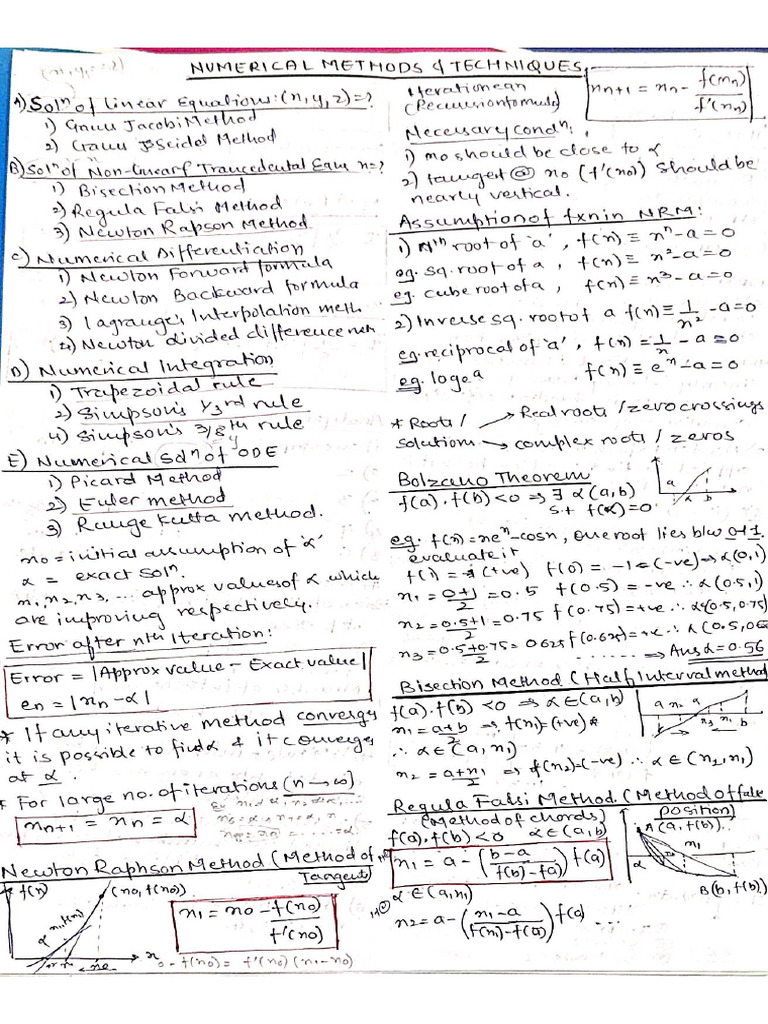 NUMERICAL METHODS & TECHNIQUES
A) Solⁿ of Linear Equations: (x, y, z) = ?
1) Gauss Jacobi Method
2) Gauss Seidal Method
B) Solⁿ of Non-linear/ Trancedental Equn x=?
1) Bisection Method
2) Regula Falsi Method
3) Newton Rapson Method
C) Numerical Differentiation
1) Newton Forward formula
2) Newton Backward formula
3) Lagrange's Interpolation meth
4) Newton divided difference meth
D) Numerical Integration
1) Trapezoidal rule
2) Simpson's 1/3rd rule
4) Simpson's 3/8th rule
E) Numerical Solⁿ of ODE
1) Picard Method
2) Euler method
3) Range Kutta method.
x0 = initial assumption of 'α'
α = exact Solⁿ.
x1, x2, x3, ... approx values of α which
are improving respectively.
Error after nth Iteration:
Error = |Approx value - Exact value|
en = |xn - α|
* If any iterative method converges
it is possible to find α & it converges
at α.
* For large no. of iterations (n → ∞)
xn+1 = xn = α
Newton Raphson Method (Method of
Tangent)
f(x)
(x0, f(x0))
x1, f(x1)
α
x
x0
x1 = x0 - f(x0)/f'(x0)
0 - f(x0) = f'(x0) (x1 - x0)
Iteration eqn
(Recursion formula)
xn+1 = xn - f(xn)/f'(xn)
Necessary condⁿ:
1) x0 should be close to α
2) tangent @ x0 (f'(x0) should be
nearly vertical.
Assumption of fxn in NRM:
1) Nth root of 'a', f(x) ≡ xⁿ - a = 0
eg. sq. root of a, f(x) ≡ x² - a = 0
eg. cube root of a, f(x) ≡ x³ - a = 0
2) Inverse sq. root of a f(x) ≡ 1/x² - a = 0
eg. reciprocal of 'a', f(x) = 1/x - a = 0
eg. logea f(x) ≡ eˣ - a = 0
* Roots/ → Real roots / zero crossings
solutions → complex roots / zeros
Bolzano Theorem
f(a) . f(b) < 0 ⇒ ∃ α (a, b)
s.t f(α) = 0
a α b
eg. f(x) = xeˣ - cosx, one root lies b/w 0 & 1.
evaluate it
f(1) = (+ve) f(0) = -1 = (-ve) ⇒ α(0,1)
x1 = 0+1/2 = 0.5 f(0.5) = -ve ∴ α(0.5,1)
x2 = 0.5+1/2 = 0.75 f(0.75) = +ve ∴ α(0.5, 0.75)
x3 = 0.5+0.75/2 = 0.625 f(0.625) = +ve ∴ α(0.5, 0.6
→ Ans α = 0.56
Bisection Method (Half Interval method
f(a) . f(b) < 0 ⇒ α ∈ (a, b)
x1 = a+b/2 ⇒ f(x1) = (+ve)*
∴ α ∈ (a, x1)
x2 = a+x1/2 ⇒ f(x2) = (-ve) ∴ α ∈ (x2, x1)
a x2 α
x3 x1 b
Regula Falsi Method. (Method of false
(Method of chords) position)
f(a).f(b) < 0 α ∈ (a, b)
x1 = a - (b-a/f(b)-f(a)) f(a)
α ∈ (a, x1)
x2 = a - (x1-a/f(x1)-f(a)) f(a) ....
A(a, f(b))
x1
α
B(b, f(b))